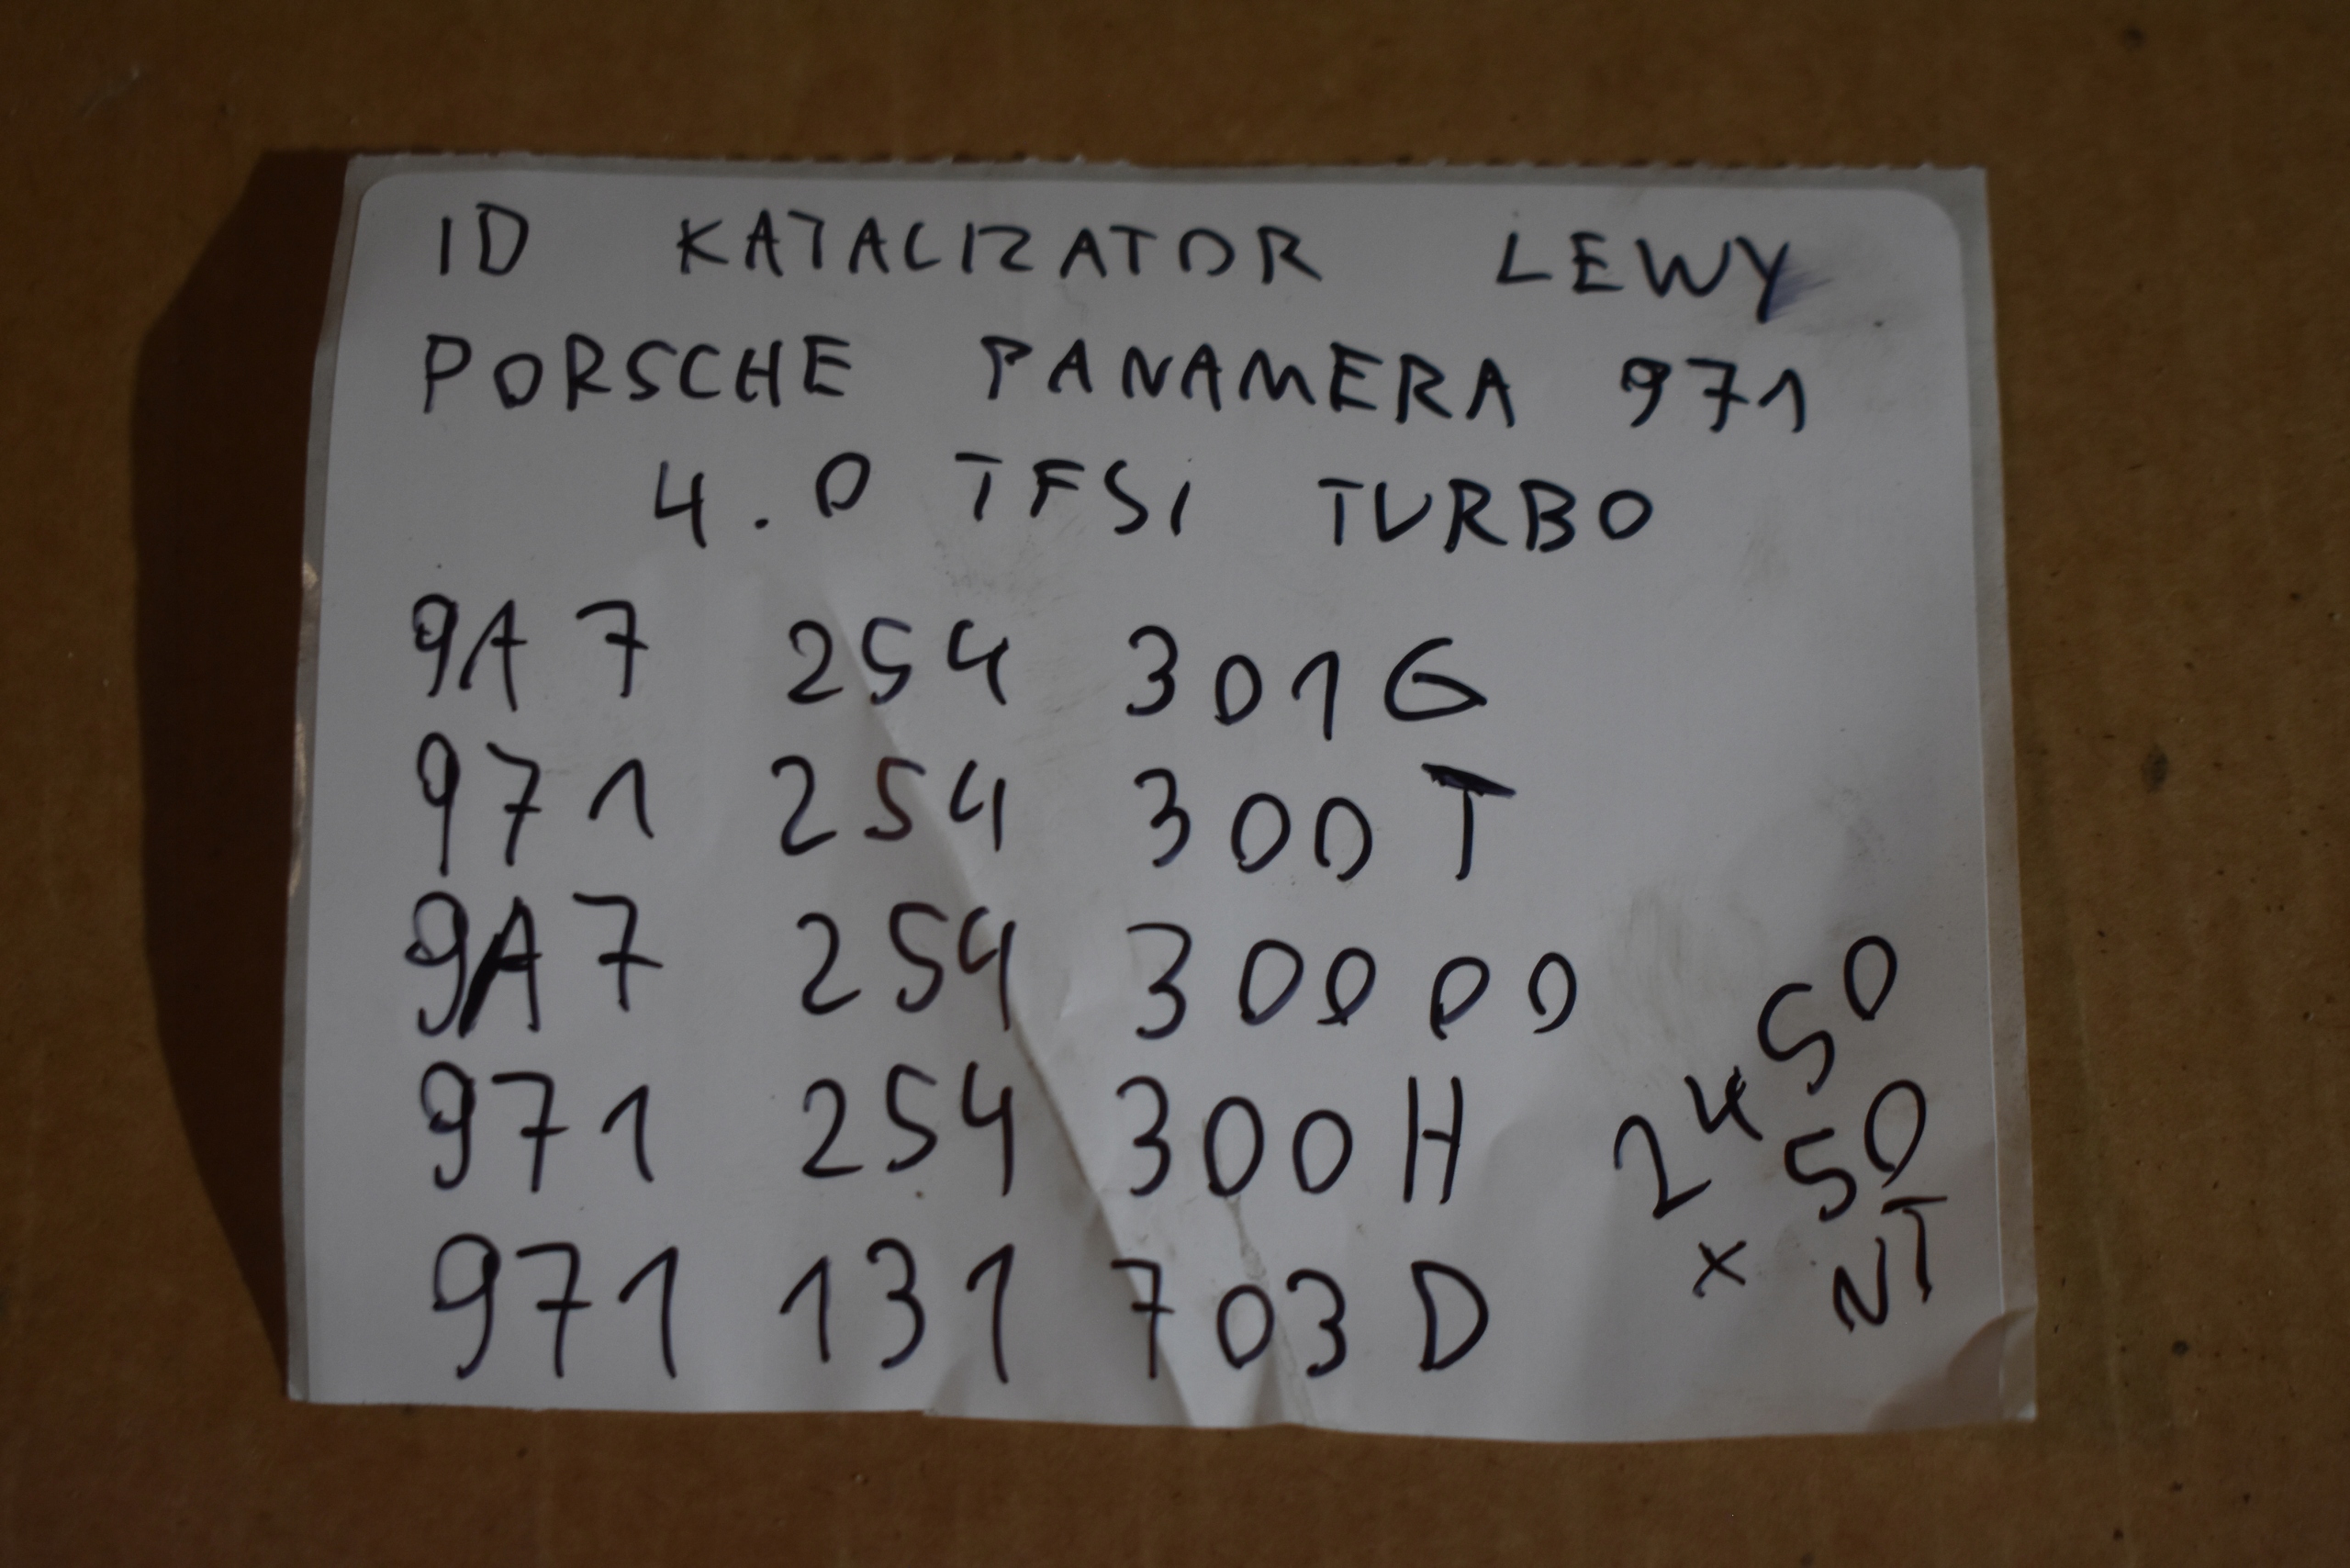 ID KATALIZATOR LEWY
PORSCHE PANAMERA 971
4.0 TFSI TURBO
9A7 254 301G
971 254 300T
9A7 254 30000
971 254 300H
971 131 703D
2450
x 50
NT